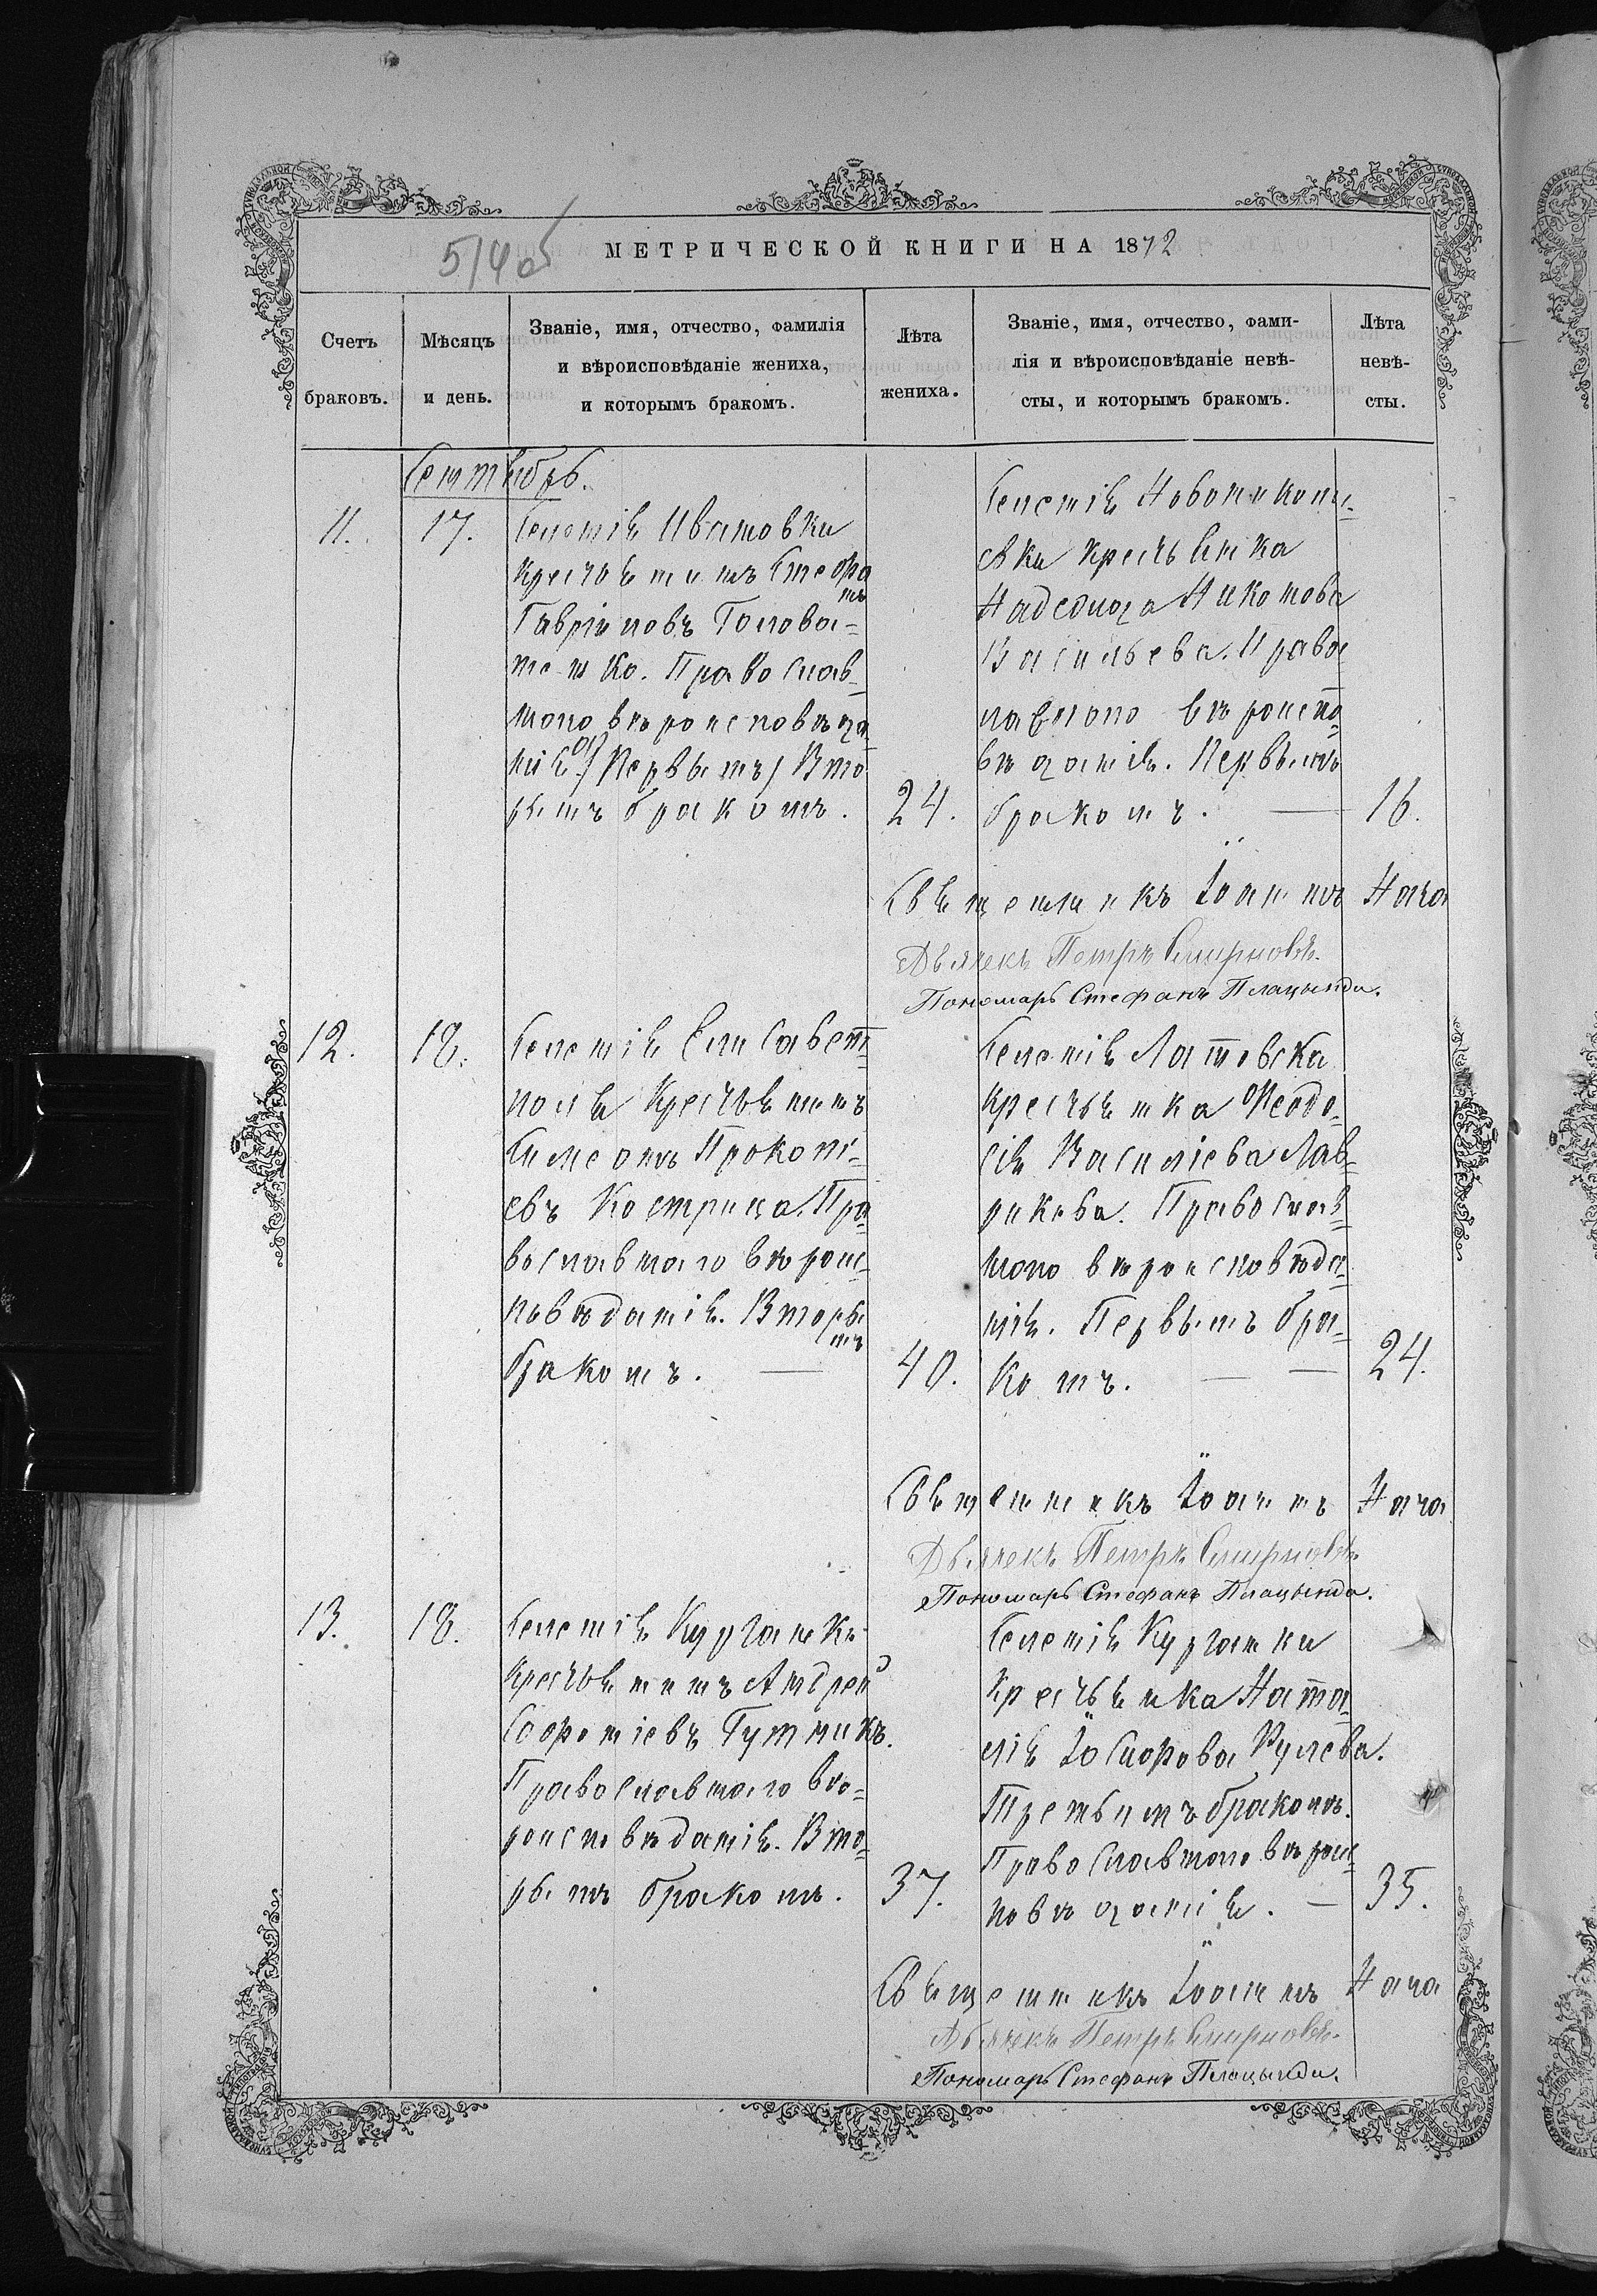 МЕТРИЧЕСКОЙ КНИГИ НА 1872
Счетъ браковъ.
Мѣсяцъ и день.
Званіе, имя, отчество, фамилія
и вѣроисповѣданіе жениха,
и которымъ бракомъ.
Лѣта жениха.
Званіе, имя, отчество, фами-
лія и вѣроисповѣданіе невѣ-
сты, и которымъ бракомъ.
Лѣта невѣ-
сты.
Сентябрь.
11.
17.
Селенія Ивановки
крестьянинъ Стефа
нъ
Гавріиловъ Голова-
тенко. Православ-
наго вѣроисповѣда
нія. (Первымъ) Вто
рымъ бракомъ.
24.
Селенія Новоникола-
евки крестьянка
Надежда Никонова
Васильева. Правос
лавнаго вѣроиспо-
вѣданія. Первымъ
бракомъ.
16.
Священникъ Іоаннъ Нага
Дьячекъ Петръ Смирновъ.
Пономарь Стефанъ Плацында.
12.
18.
Селенія Елисавет-
поля Крестьянинъ
Симеонъ Прокопі-
евъ Кострица. Пра
вославнаго вѣроис-
повѣданія. Вторы
мъ
бракомъ.
40.
Селенія
Крестьянка Феодо-
сія Василіева Лав-
рикова. Православ-
наго вѣроисповѣда-
нія. Первымъ бра-
комъ.
24.
Священникъ Іоаннъ Нага
Дьячекъ Петръ Смирновъ
Пономарь Стефанъ Плацында.
13.
18.
Селенія Курганки
Крестьянинъ Андрей
Софоніевъ Гутникъ.
Православнаго вѣ-
роисповѣданія. Вто-
рымъ бракомъ.
37.
Селенія Курганки
Крестьянка Ната-
лія Іосифова Рулева.
Третьимъ бракомъ.
Православнаго вѣроис-
повѣданія.
35.
Священникъ Іоаннъ Нага
Дьячекъ Петръ Смирновъ.
Пономарь Стефанъ Плацында.